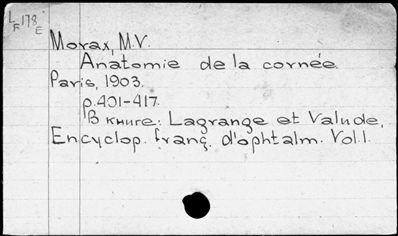 L 178
F E
Morax, M.V.
Anatomie de la cornée
Paris, 1903.
p.401-417.
В книге: Lagrange et Valude,
Encyclop. franç. d'ophtalm. Vol.1.